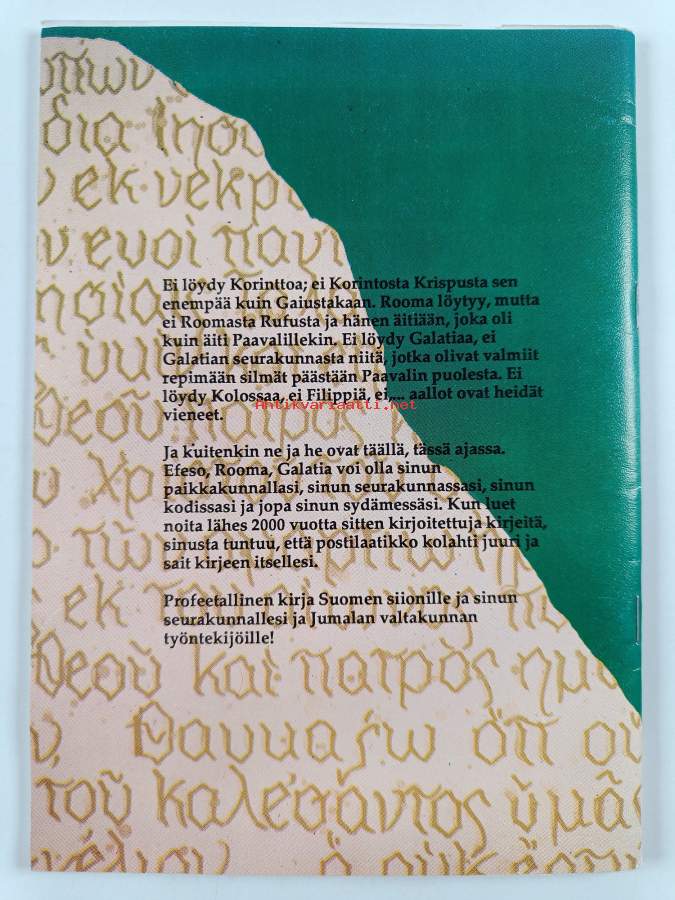 διά Ἰησου
ἐκ νεκρ
Ei löydy Korinttoa; ei Korintosta Krispusta sen
enempää kuin Gaiustakaan. Rooma löytyy, mutta
ei Roomasta Rufusta ja hänen äitiään, joka oli
kuin äiti Paavalillekin. Ei löydy Galatiaa, ei
Galatian seurakunnasta niitä, jotka olivat valmiit
repimään silmät päästään Paavalin puolesta. Ei
löydy Kolossaa, ei Filippiä, ei,... aallot ovat heidät
Antikvariaatti.net
vieneet.
Ja kuitenkin ne ja he ovat täällä, tässä ajassa.
Efeso, Rooma, Galatia voi olla sinun
paikkakunnallasi, sinun seurakunnassasi, sinun
kodissasi ja jopa sinun sydämessäsi. Kun luet
noita lähes 2000 vuotta sitten kirjoitettuja kirjeitä,
sinusta tuntuu, että postilaatikko kolahti juuri ja
sait kirjeen itsellesi.
Profeetallinen kirja Suomen siionille ja sinun
seurakunnallesi ja Jumalan valtakunnan
työntekijöille!
Θεοῦ καὶ πατρὸς ημ
Θαυμαζω ὅτι οὕ
τοῦ καλέσαντος ὑμᾶ